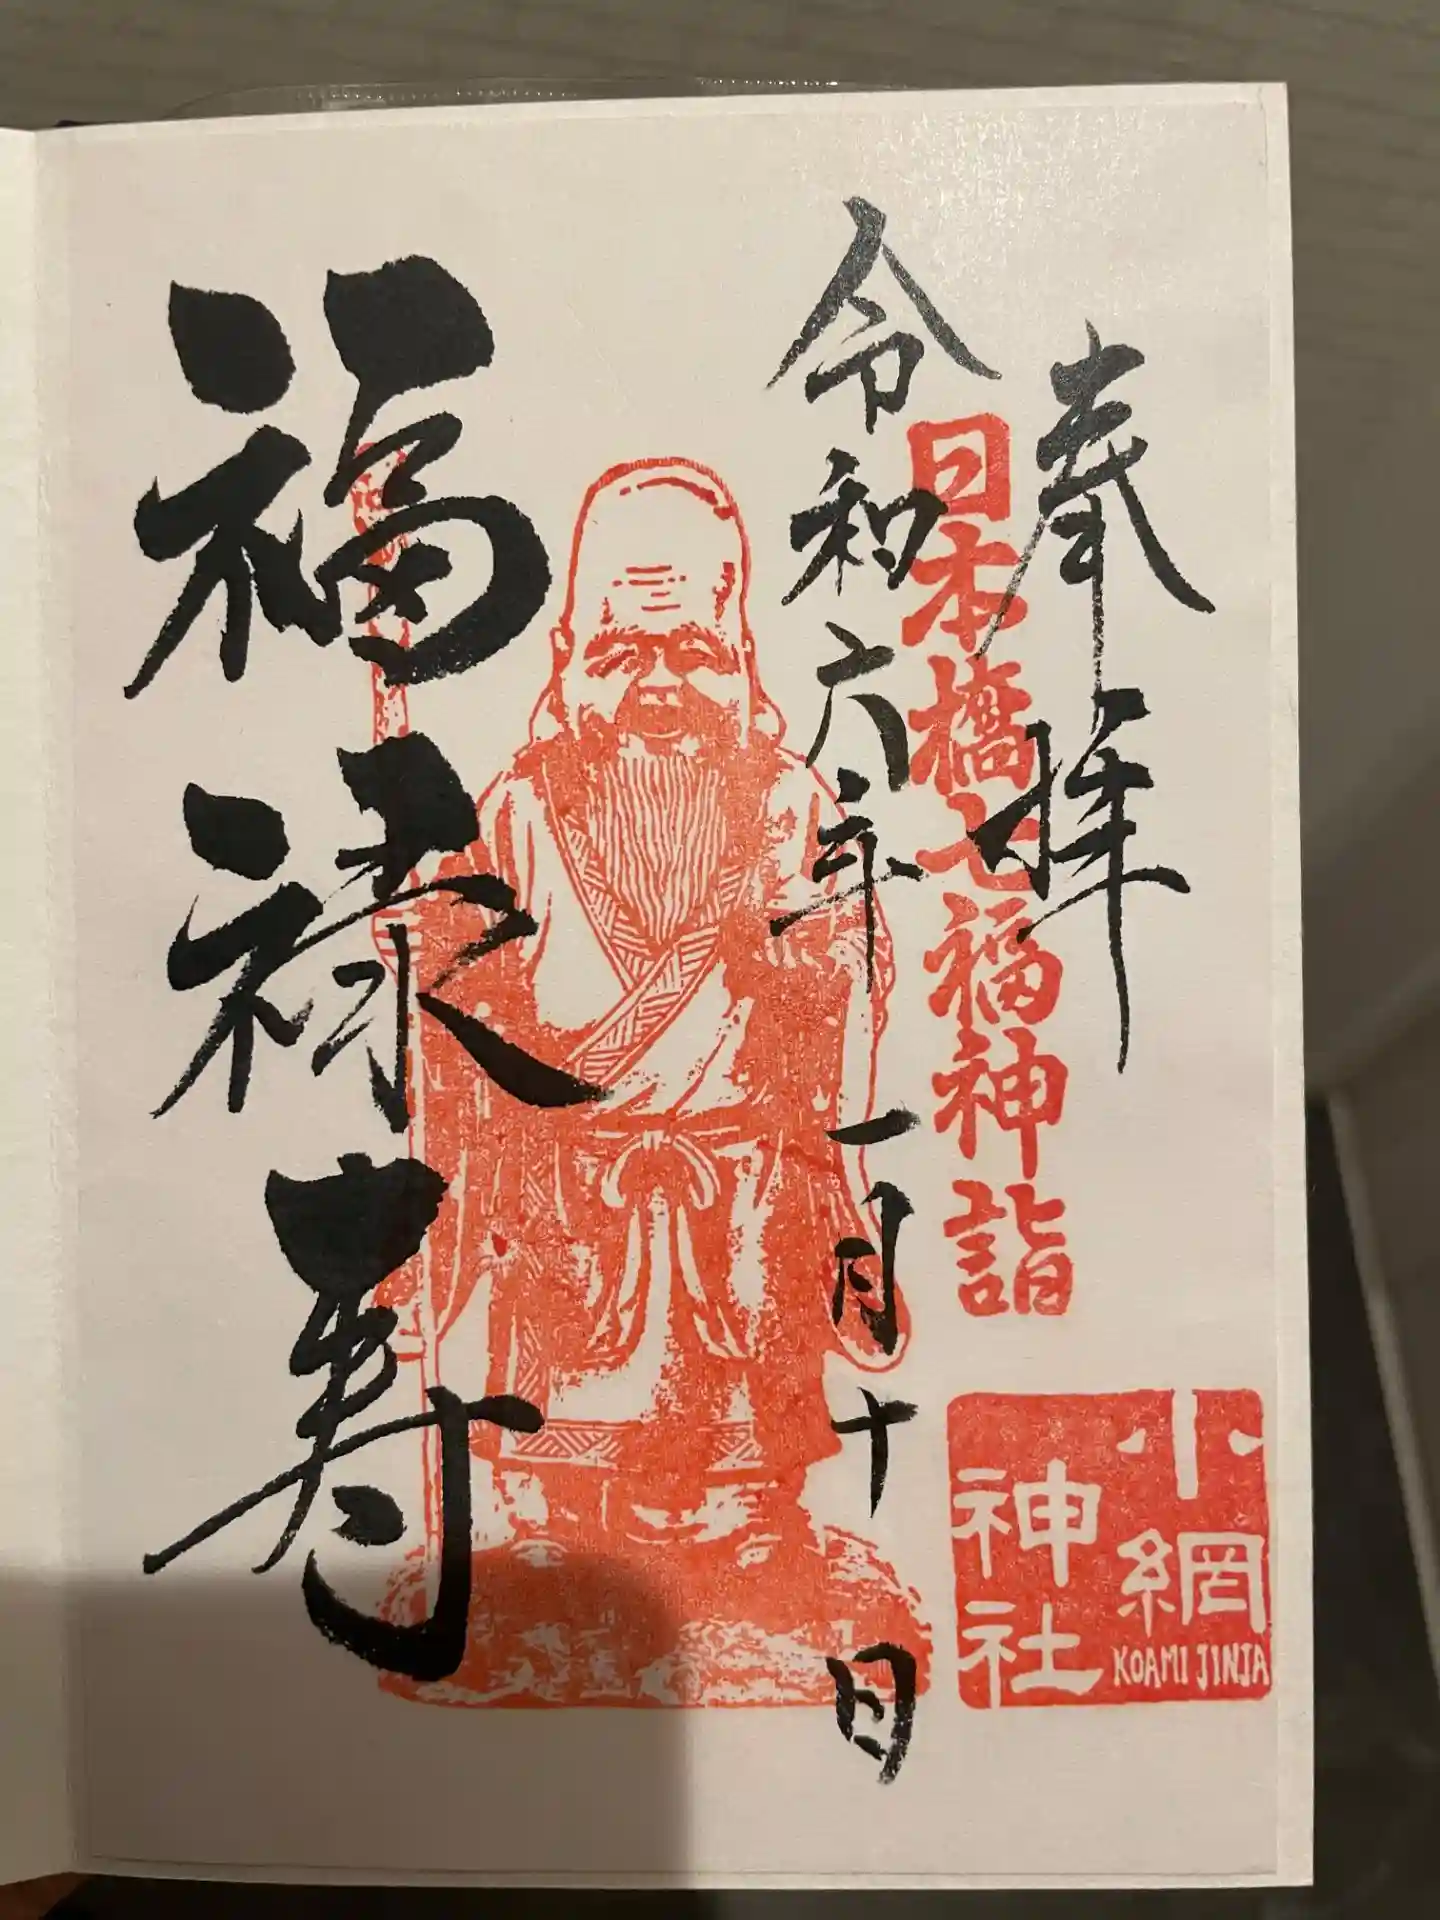 奉拝
日本橋七福神詣
令和六年一月十日
福禄寿
小網
神社
KOAMI JINJA